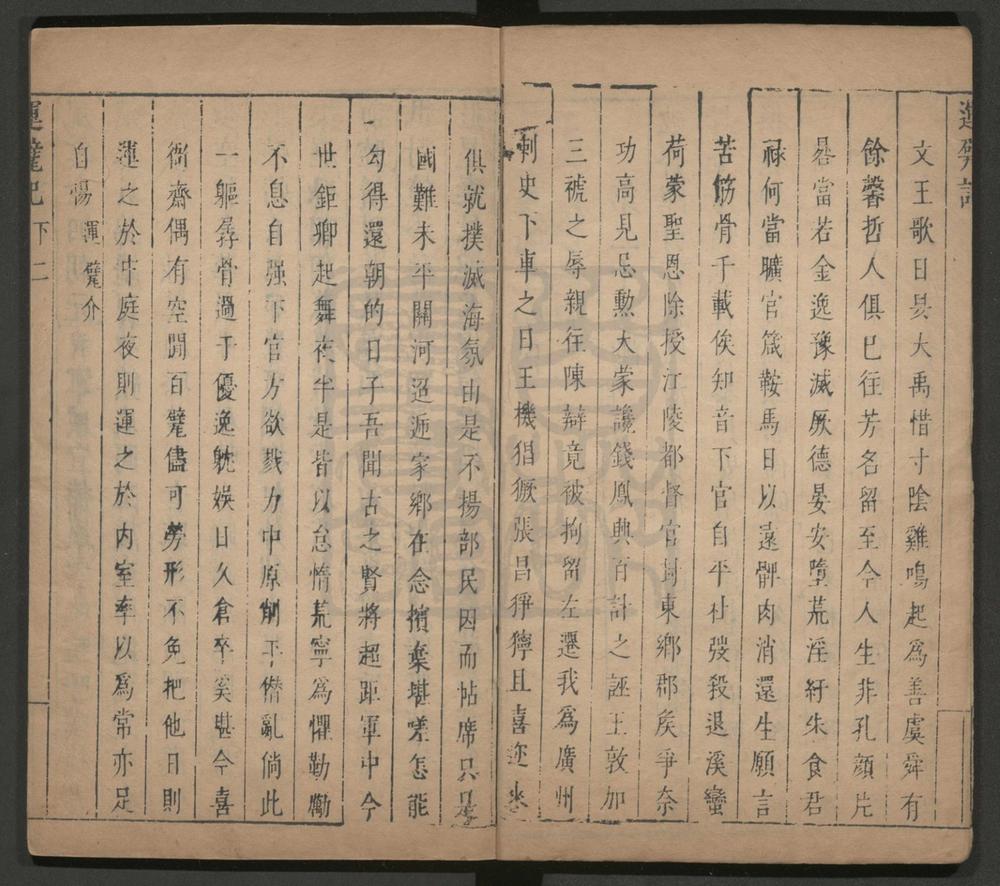 運甓記
文王歌日昃大禹惜寸陰雞鳴起爲善虞舜有
餘馨哲人俱已往芳名留至今人生非孔顔片
晷當若金逸豫滅厥德晏安墮荒淫紆朱食君
祿何當曠官箴鞍馬日以遠髀肉消還生願言
苦筋骨千載俟知音下官自平杜弢殺退溪蠻
荷蒙聖恩除授江陵都督官封東鄉郡矦爭奈
功高見忌勲大蒙讒錢鳳興百計之誣王敦加
三褫之辱親往陳辯竟被拘留左遷我爲廣州
刺史下車之日王機猖獗張昌猙獰且喜迩來
俱就撲滅海氛由是不揚部民因而帖席只是
國難未平關河迢逓家鄉在念擯棄堪嗟怎能
勾得還朝的日子吾聞古之賢將超距軍中今
世鉅卿起舞夜半是皆以怠惰荒寧爲懼勤勵
不息自强下官方欲戮力中原削平僣亂倘此
一軀孱骨過于優逸躭娱日久倉卒奚堪今喜
衙齋偶有空閒百甓儘可勞形不免把他日則
運之於中庭夜則運之於内室率以爲常亦足
自惕運甓介
運甓記 下 二